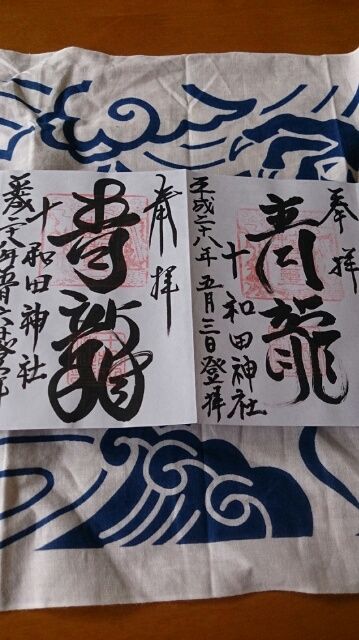 奉拝
青龍
十和田神社
平成二十八年五月三日登拝
奉拝
青龍
十和田神社